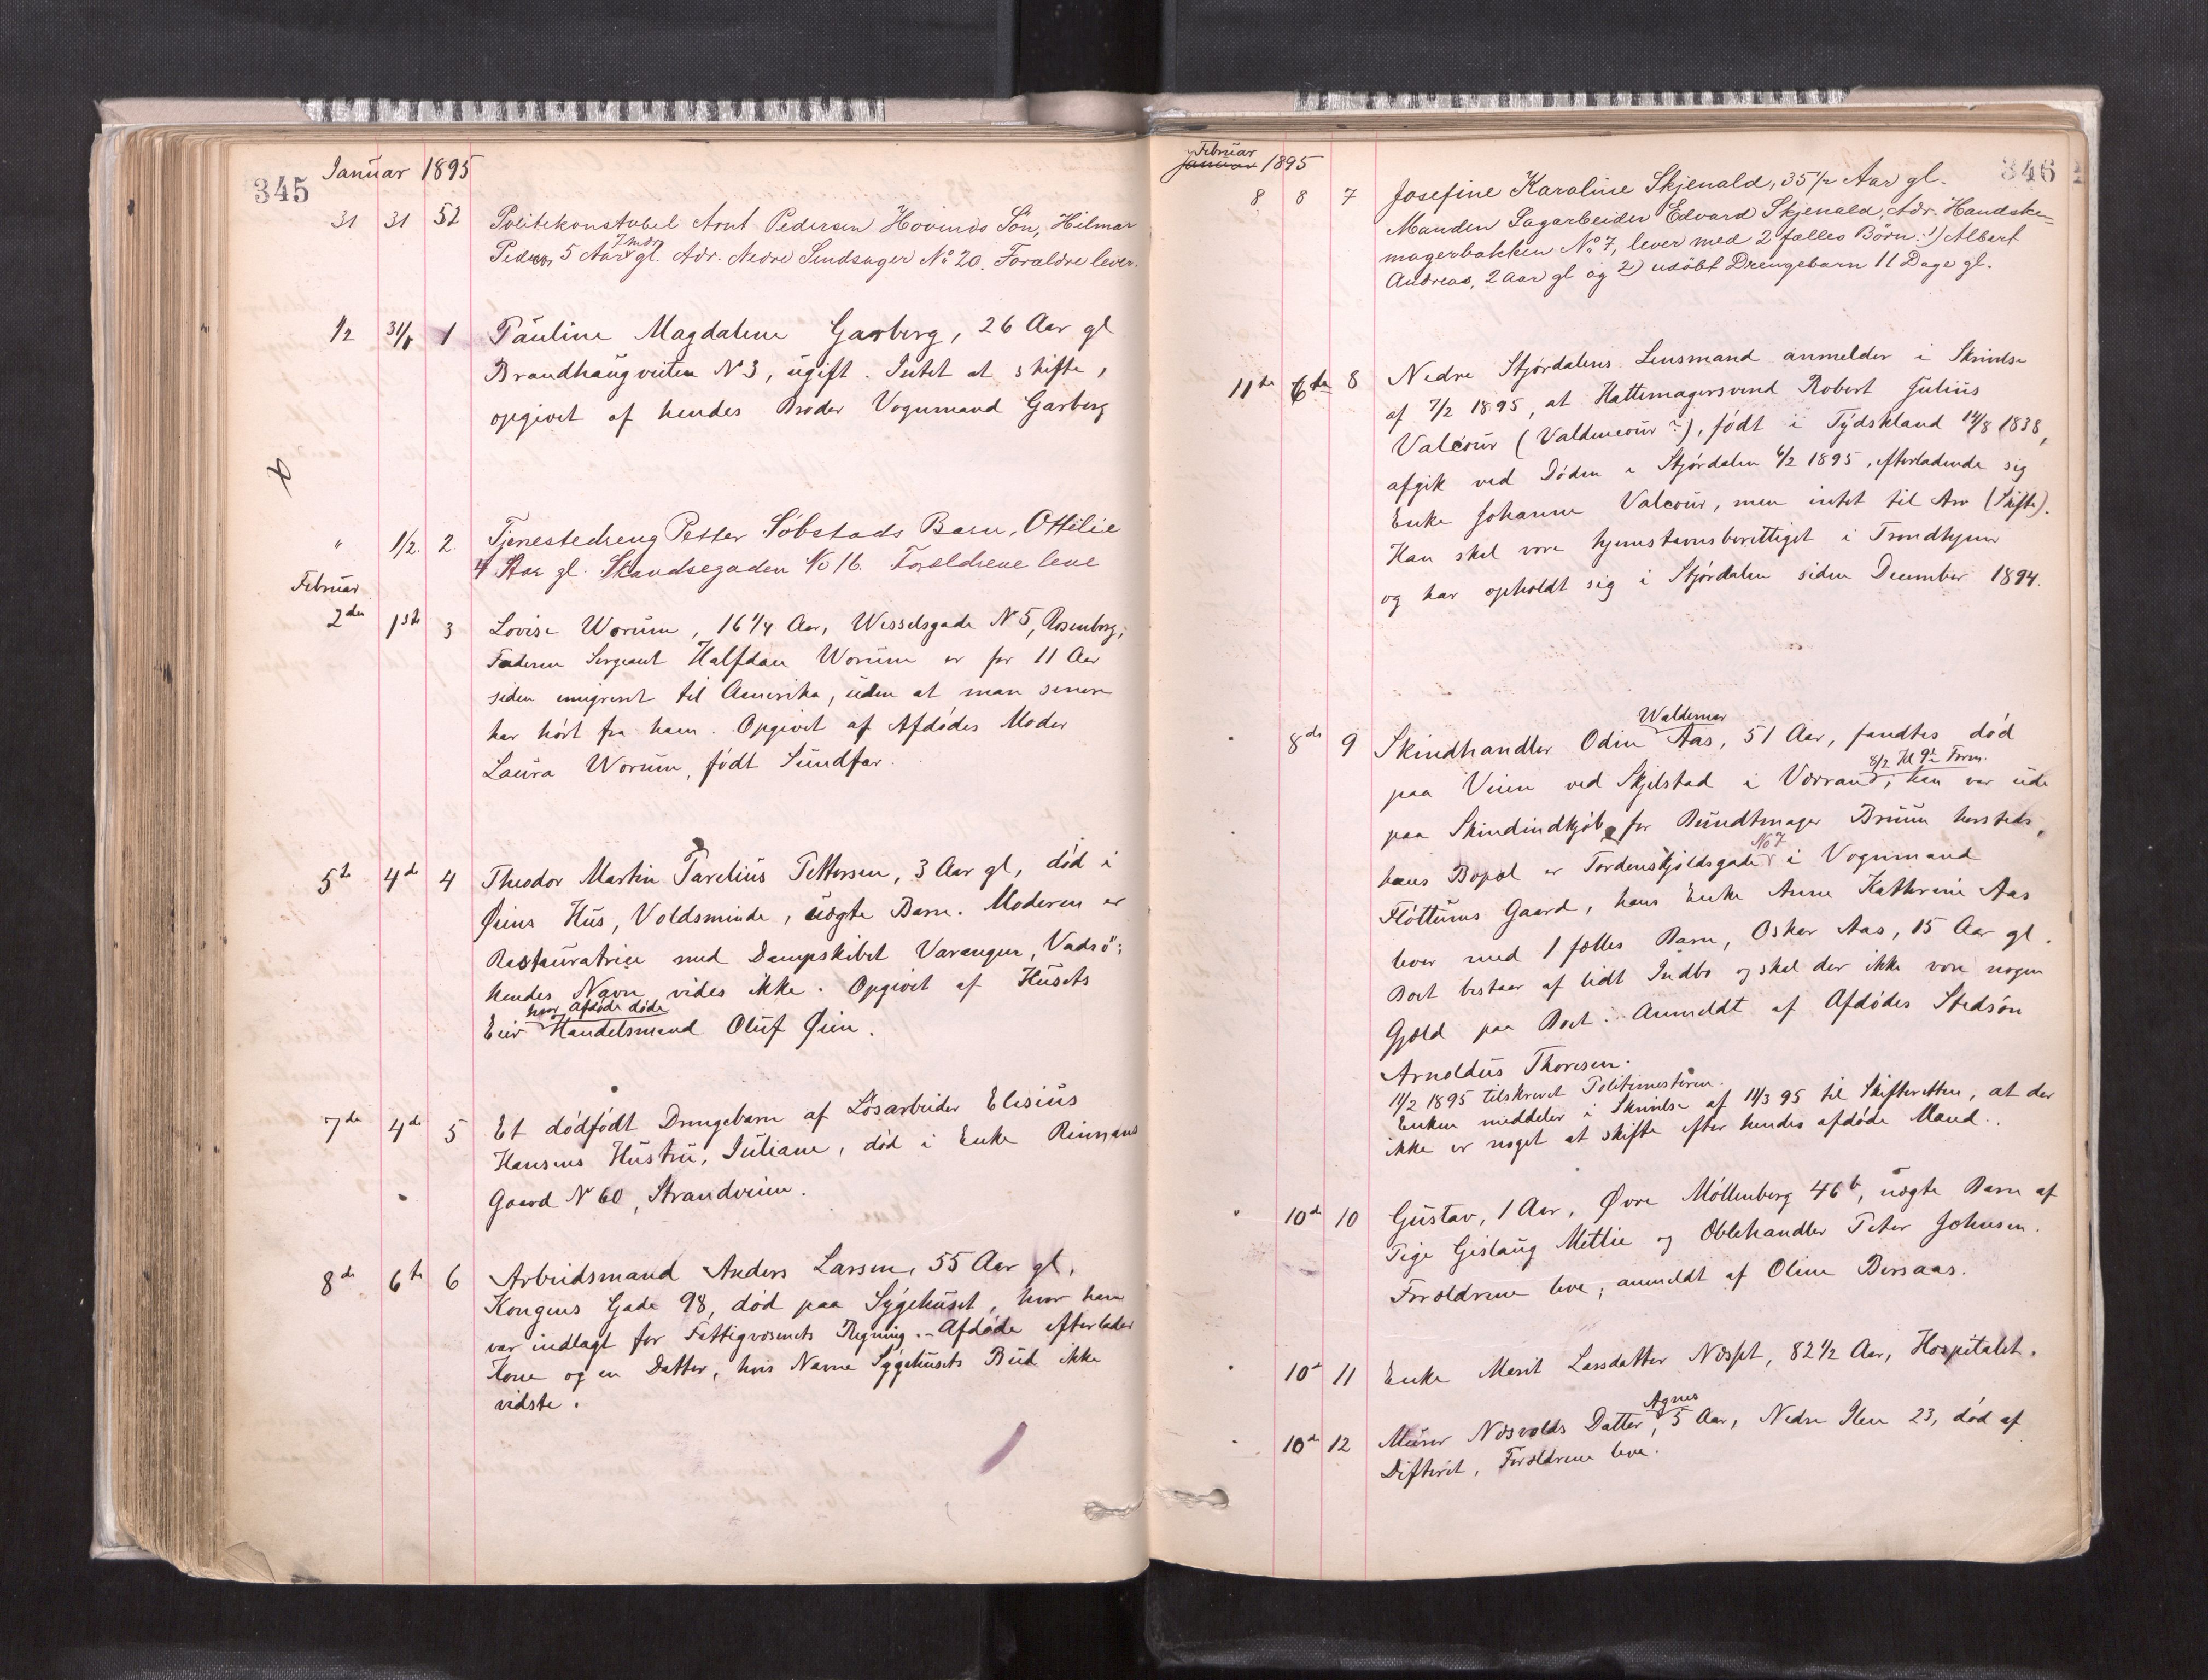 345
Januar 1895
31 31 52 Politikonstabel Arnt Pedersen Hovinds Sön, Hilmar
7 mdr
Peder, 5 Aar gl. Adr. Nedre No 20. Forældre lever.
1/2 31/1 1 Pauline Magdalene Garberg, 26 Aar gl
Brandhaugveiten N 3, ugift. Intet at skifte,
opgivet af hendes Broder Vognmand Garberg
" 1/2. 2. Tjenestedreng Petter Söbstads Barn, Ottilie
4 Aar gl. Skandsegaden No 16. Forældrene leve
Februar
2den 1ste 3 Lovise Worum, 16 1/4 Aar, Wesselsgade N 5, Rosenborg;
Faderen Sergeant Halfdan Worum er for 11 Aar
siden emigreret til Amerika, uden at man senere
har hört fra ham. Opgivet af Afdödes Moder
Laura Worum, födt Sundfær.
5te 4de 4 Theodor Martin Parelius Pettersen, 3 Aar gl, död i
Øiens Hus, Voldsminde, uægte Barn. Moderen er
Restauratrice med Dampskibet Varanger, "Vadsö";
hendes Navn vides ikke. Opgivet af Husets
hvor Afdøde døde
Eier Handelsmand Oluf Øien.
7de 4de 5 Et dödfödt Drengebarn af Lösarbeider Elisius
Hansens Hustru, Juliane, död i Enke Rinnans
Gaard N 60, Strandveien.
8de 6te 6 Arbeidsmand Anders Larsen, 55 Aar gl,
Kongens Gade 98, död paa Sygehuset, hvor han
var indlagt for Fattigvæsenets Regning. - Afdøde efterlader
Kone og en Datter, hvis Navne Sygehusets Bud ikke
vidste.
346
Februar
Januar 1895
8 8 7 Josefine Karoline Skjenald, 35 1/2 Aar gl.
Manden Sagarbeider Edvard Skjenald, Adr. Handske-
magerbakken No 7, lever med 2 fælles Börn: 1) Albert
Andreas, 2 Aar gl og 2) udöbt Drengebarn 11 Dage gl.
11te 6te 8 Nedre Stjördalens Lensmand anmelder i Skrivelse
af 7/2 1895, at Hattemagersvend Robert Julius
Valcour (Valdencour?), födt i Tydskland 14/8 1838,
afgik ved Döden i Stjördalen 6/2 1895, efterladende sig
Enke Johanne Valcour, men intet til Arv (Skifte).
Han skal være hjemstavnsberettiget i Trondhjem
og har opholdt sig i Stjördalen siden December 1894.
Waldemar
" 8de 9 Skindhandler Odin Aas, 51 Aar, fandtes död
8/2 Kl 9 1/2 Form.
paa Veien ved Skjelstad i Værran; han var ude
paa Skindindkjöb for Bundtmager Bruun hersteds,
No 7
hans Bopæl er Tordenskjoldsgade i Vognmand
Flöttums Gaard, hans Enke Anne Kathrine Aas
lever med 1 fælles Barn, Oskar Aas, 15 Aar gl.
Boet bestaar af lidt Indbo og skal der ikke være nogen
Gjæld paa Boet. Anmeldt af Afdödes Stedsön
Arnoldus Thoresen.
11/2 1895 tilskrevet Politimesteren.
Enken meddeler i Skrivelse af 11/3 95 til Skifteretten, at der
ikke er noget at skifte efter hendes afdöde Mand.
" 10de 10 Gustav, 1 Aar, Øvre Möllenberg 46b, uægte Barn af
Pige Gislaug Mettie og Oblehandler Peter Johnsen.
Forældrene leve; anmeldt af Oline Bersaas.
" 10de 11 Enke Marit Larsdatter Næsset, 82 1/2 Aar, Hospitalet.
Agnes
" 10de 12 Murer Næsvolds Datter, 5 Aar, Nedre Ilen 23, död af
Difterit, Forældrene leve.